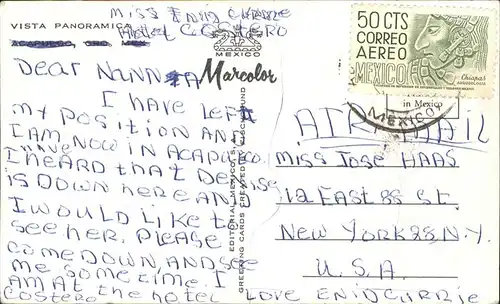 Miss Enid Currie
VISTA PANORAMICA
Hotel Costero
ACAPULCO, GRO.
MEXICO
Marcolor
50 CTS
CORREO
AEREO
MEXICO
Chiapas
ARQUEOLOGIA
in Mexico
MEXICO
Dear NANN
I have left
my position AND
I AM NOW IN ACAPULCO.
I heard that Denise
is Down here AND
I WOULD Like to
see her. PleAse
come Down AND see
me some time. I
AM At the hotel
Costero
LOVE ENID CURRIE
EDITORIAL MEXICO, S. A.
GREETING CARDS CREATED BY FISCHGRUND
AIR MAIL
MISS JOSE HAAS
12 EAST 88 St.
NEW YORK 28 N.Y.
U.S.A.